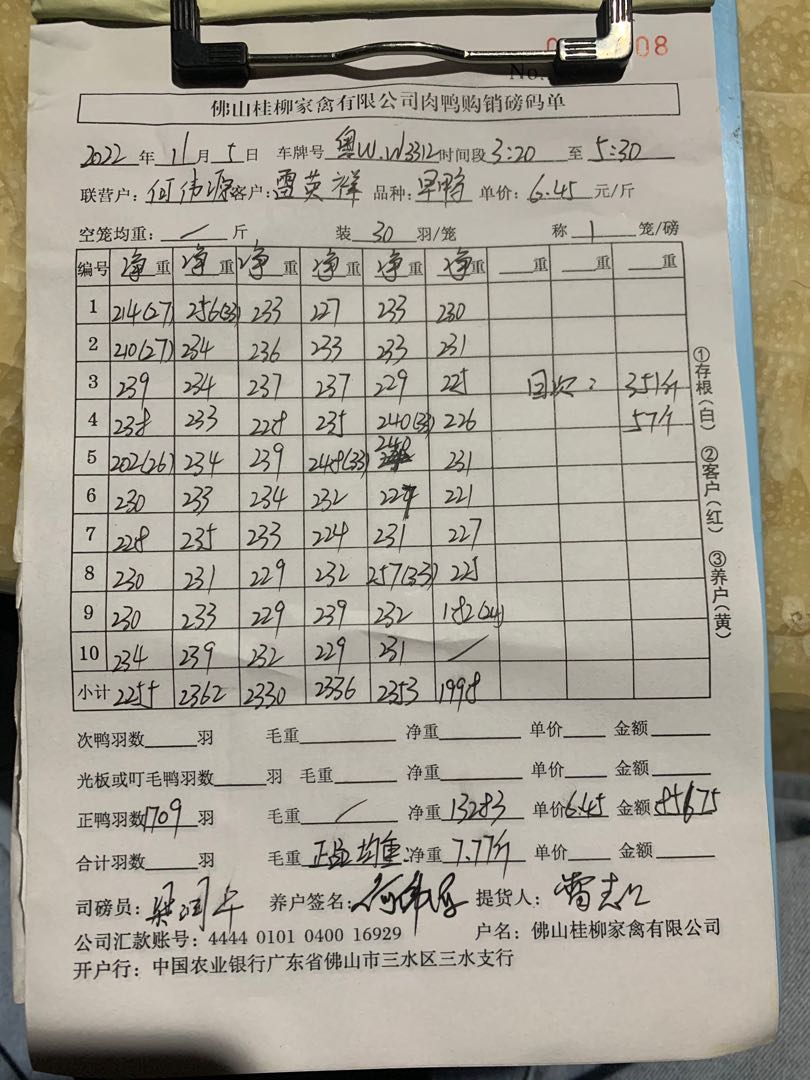 08
No.
佛山桂柳家禽有限公司肉鸭购销磅码单
2022 年 11 月 5 日 车牌号 粤W.W3312 时间段 3:20 至 5:30
联营户: 何伟源 客户: 雷英祥 品种: 旱鸭 单价: 6.45 元/斤
空笼均重: / 斤 装 30 羽/笼 称 1 笼/磅
编号 净重 净重 净重 净重 净重 净重 重 重 重
1 214(27) 256(33) 233 227 233 230
2 210(27) 234 236 233 233 231
3 239 234 237 237 229 225 回次: 351斤
4 238 233 228 235 240(33) 226 57斤
5 202(26) 234 239 248(33) 240 231
6 230 233 234 232 227 221
7 228 235 233 224 231 227
8 230 231 229 232 257(33) 225
9 230 233 229 239 232 182(24)
10 234 239 232 229 231 /
小计 2255 2362 2330 2336 2353 1998
①存根(白) ②客户(红) ③养户(黄)
次鸭羽数 羽 毛重 净重 单价 金额
光板或叮毛鸭羽数 羽 毛重 净重 单价 金额
正鸭羽数 1709 羽 毛重 / 净重 13283 单价 6.45 金额 85675
合计羽数 羽 毛重 正品均重: 净重 7.77斤 单价 金额
司磅员: 养户签名: 何伟源 提货人:
公司汇款账号: 4444 0101 0400 16929 户名: 佛山桂柳家禽有限公司
开户行: 中国农业银行广东省佛山市三水区三水支行